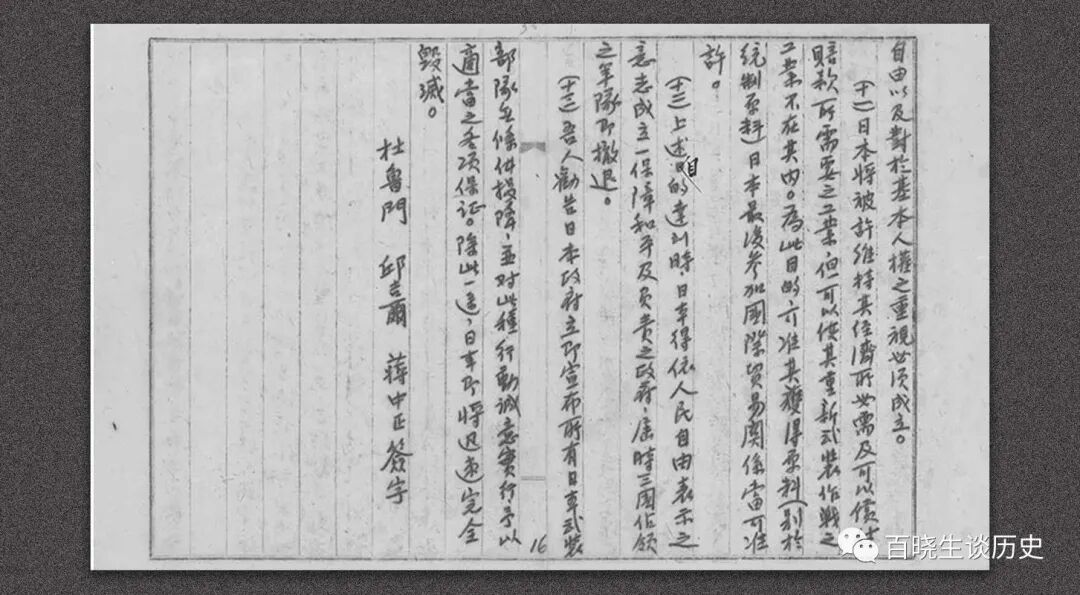 自由以及對於基本人權之重視必須成立。
(十一)日本將被許維持其經濟所必需及可以償付
賠款所需要之工業,但可以供其重新武裝作戰之
工業不在其內。為此目的,亦准其獲得原料(別於
統制原料)日本最後參加國際貿易關係當可准
許。
(十二)上述目的達到時日本得依人民自由表示之
意志成立一保障和平及負責之政府,屆時三國佔領
之軍隊即撤退。
(十三)吾人勸告日本政府立即宣布所有日本武裝
16
部隊無條件投降,並对此種行動誠意實行予以
適當之各項保证。除此一途,日本即將迅速完全
毀滅。
杜魯門 邱吉爾 蔣中正 簽字
百晓生谈历史